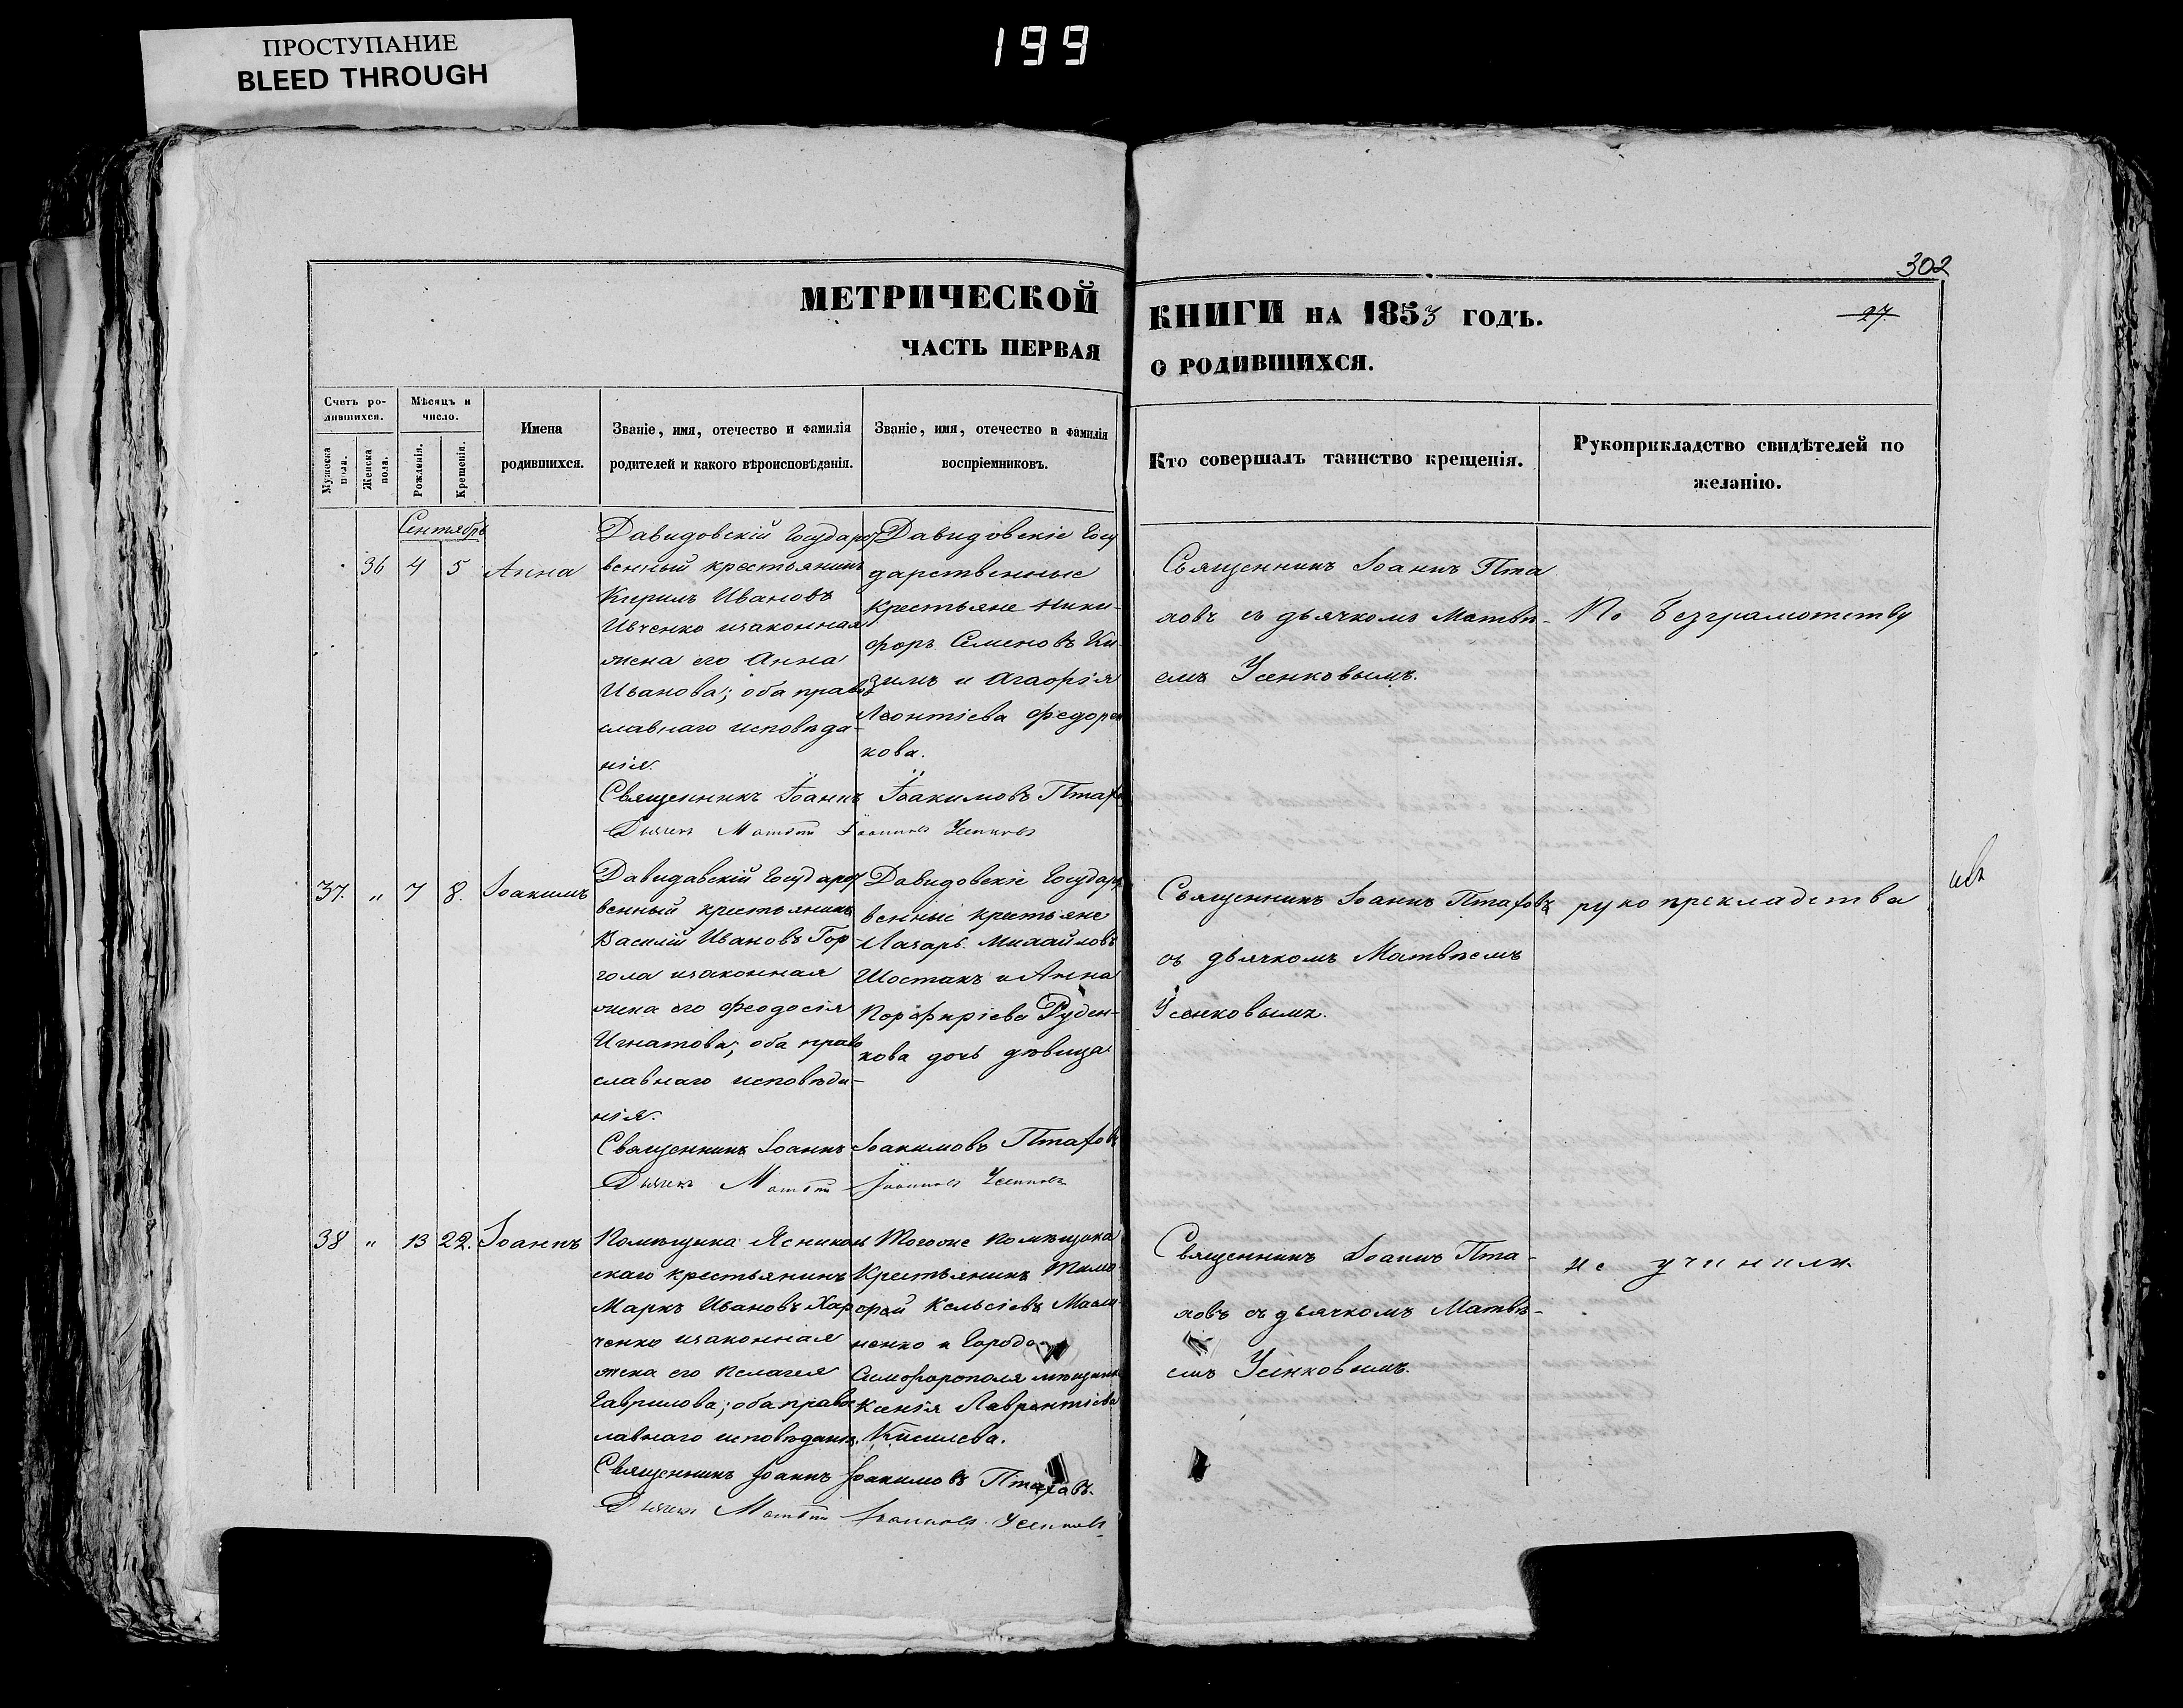 ПРОСТУПАНИЕ
BLEED THROUGH
199
302
МЕТРИЧЕСКОЙ
ЧАСТЬ ПЕРВАЯ
КНИГИ НА 1853 ГОДЪ.
27
О РОДИВШИХСЯ.
Счетъ ро-
дившихся.
Мужеска
пола.
Женска
пола.
Мѣсяцъ и
число.
Рожденія.
Крещенія.
Имена
родившихся.
Званіе, имя, отечество и фамилія
родителей и какого вѣроисповѣданія.
Званіе, имя, отечество и фамилія
воспріемниковъ.
Кто совершалъ таинство крещенія.
Рукоприкладство свидѣтелей по
желанію.
Сентябрь
36 4 5 Анна
Давидовскій Государст
венный крестьянинъ
Кирилъ Ивановъ
Ивченко изаконная
жена его Анна
Иванова; оба право
славнаго исповѣда-
нія.
Давидовскіе Госу
дарственные
крестьяне Ники-
форъ Семеновъ Ки-
зимъ и Агафія
Леонтіева Федорен
кова.
Священникъ Іоаннъ Іоакимовъ Птаховъ
Дьячекъ Матвѣй Іоанновъ Усенковъ
Священникъ Іоаннъ Пта
ховъ съ дьячкомъ Матвѣ-
емъ Усенковымъ.
По безграмотству
37. " 7 8. Іоакимъ
Давидавскій Государст
венный крестьянинъ
Василій Ивановъ Гор-
гола изаконная
жена его Феодосія
Игнатова; оба право
славнаго исповѣда-
нія.
Давидовскіе Государст
венные крестьяне
Лазарь Михайловъ
Шостакъ и Анна
Порфиріева Руден-
кова дочь дѣвица
Священникъ Іоаннъ Іоакимовъ Птаховъ
Дьячекъ Матвѣй Іоанновъ Усенковъ
Священникъ Іоаннъ Птаховъ
съ дьячкомъ Матвѣемъ
Усенковымъ.
рукопрекладства
38 " 13 22. Іоаннъ
Помѣщика Ясников
скаго крестьянинъ
Маркъ Ивановъ Хар
ченко изаконная
жена его Пелагея
Гаврилова; оба право
лавнаго исповѣданія.
Тогоже помѣщика
Крестьянинъ Тимо
фей Кельсіевъ
ненко и Города
Симферополя мѣщанка
Ксенія Лаврентіева
Кисилева.
Священникъ Іоаннъ Іоакимовъ Птаховъ.
Дьячекъ Матвѣй Іоанновъ Усенковъ
Священникъ Іоаннъ Пта-
ховъ съ дьячкомъ Матвѣ-
емъ Усенковымъ.
не учинили.